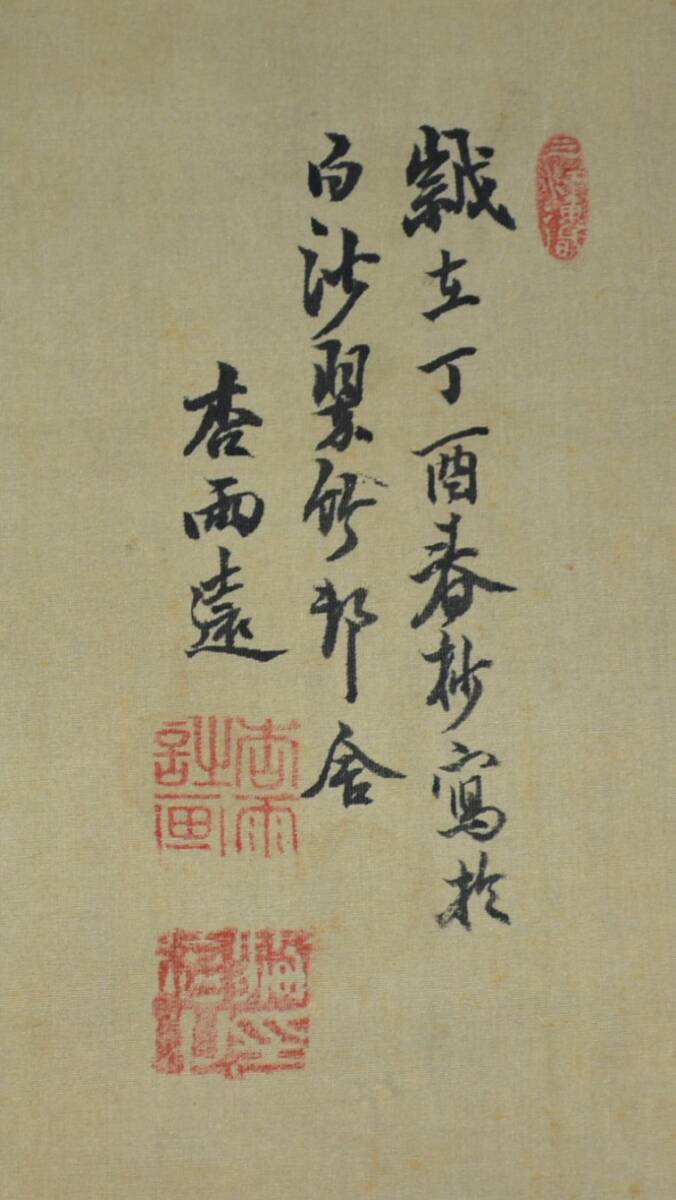 歲在丁酉春杪寫於
白沙翠竹邨舍
杏雨遠
杏雨